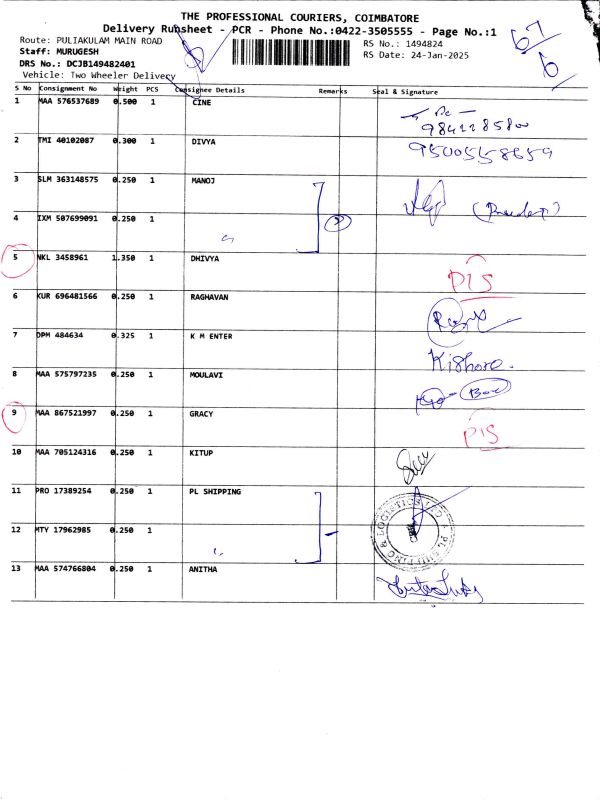 THE PROFESSIONAL COURIERS, COIMBATORE
Delivery Runsheet - PCR - Phone No.:0422-3505555 - Page No.:1
67/6
Route: PULIAKULAM MAIN ROAD
RS No.: 1494824
Staff: MURUGESH
RS Date: 24-Jan-2025
DRS No.: DCJB149482401
Vehicle: Two Wheeler Delivery
S No Consignment No Weight PCS Consignee Details Remarks Seal & Signature
1 MAA 576537689 0.500 1 CINE
9841185800
2 TMI 40102087 0.300 1 DIVYA 9500558659
3 SLM 363148575 0.250 1 MANOJ
4 IXM 507699091 0.250 1 2
5 NKL 3458961 1.350 1 DHIVYA PIS
6 KUR 696481566 0.250 1 RAGHAVAN
7 DPM 484634 0.325 1 K M ENTER Kishore.
8 MAA 575797235 0.250 1 MOULAVI Box
9 MAA 867521997 0.250 1 GRACY PIS
10 MAA 705124316 0.250 1 KITUP
11 PRO 17389254 0.250 1 PL SHIPPING
PL SHIPPING & LOGISTICS LTD
12 MTY 17962985 0.250 1
13 MAA 574766804 0.250 1 ANITHA